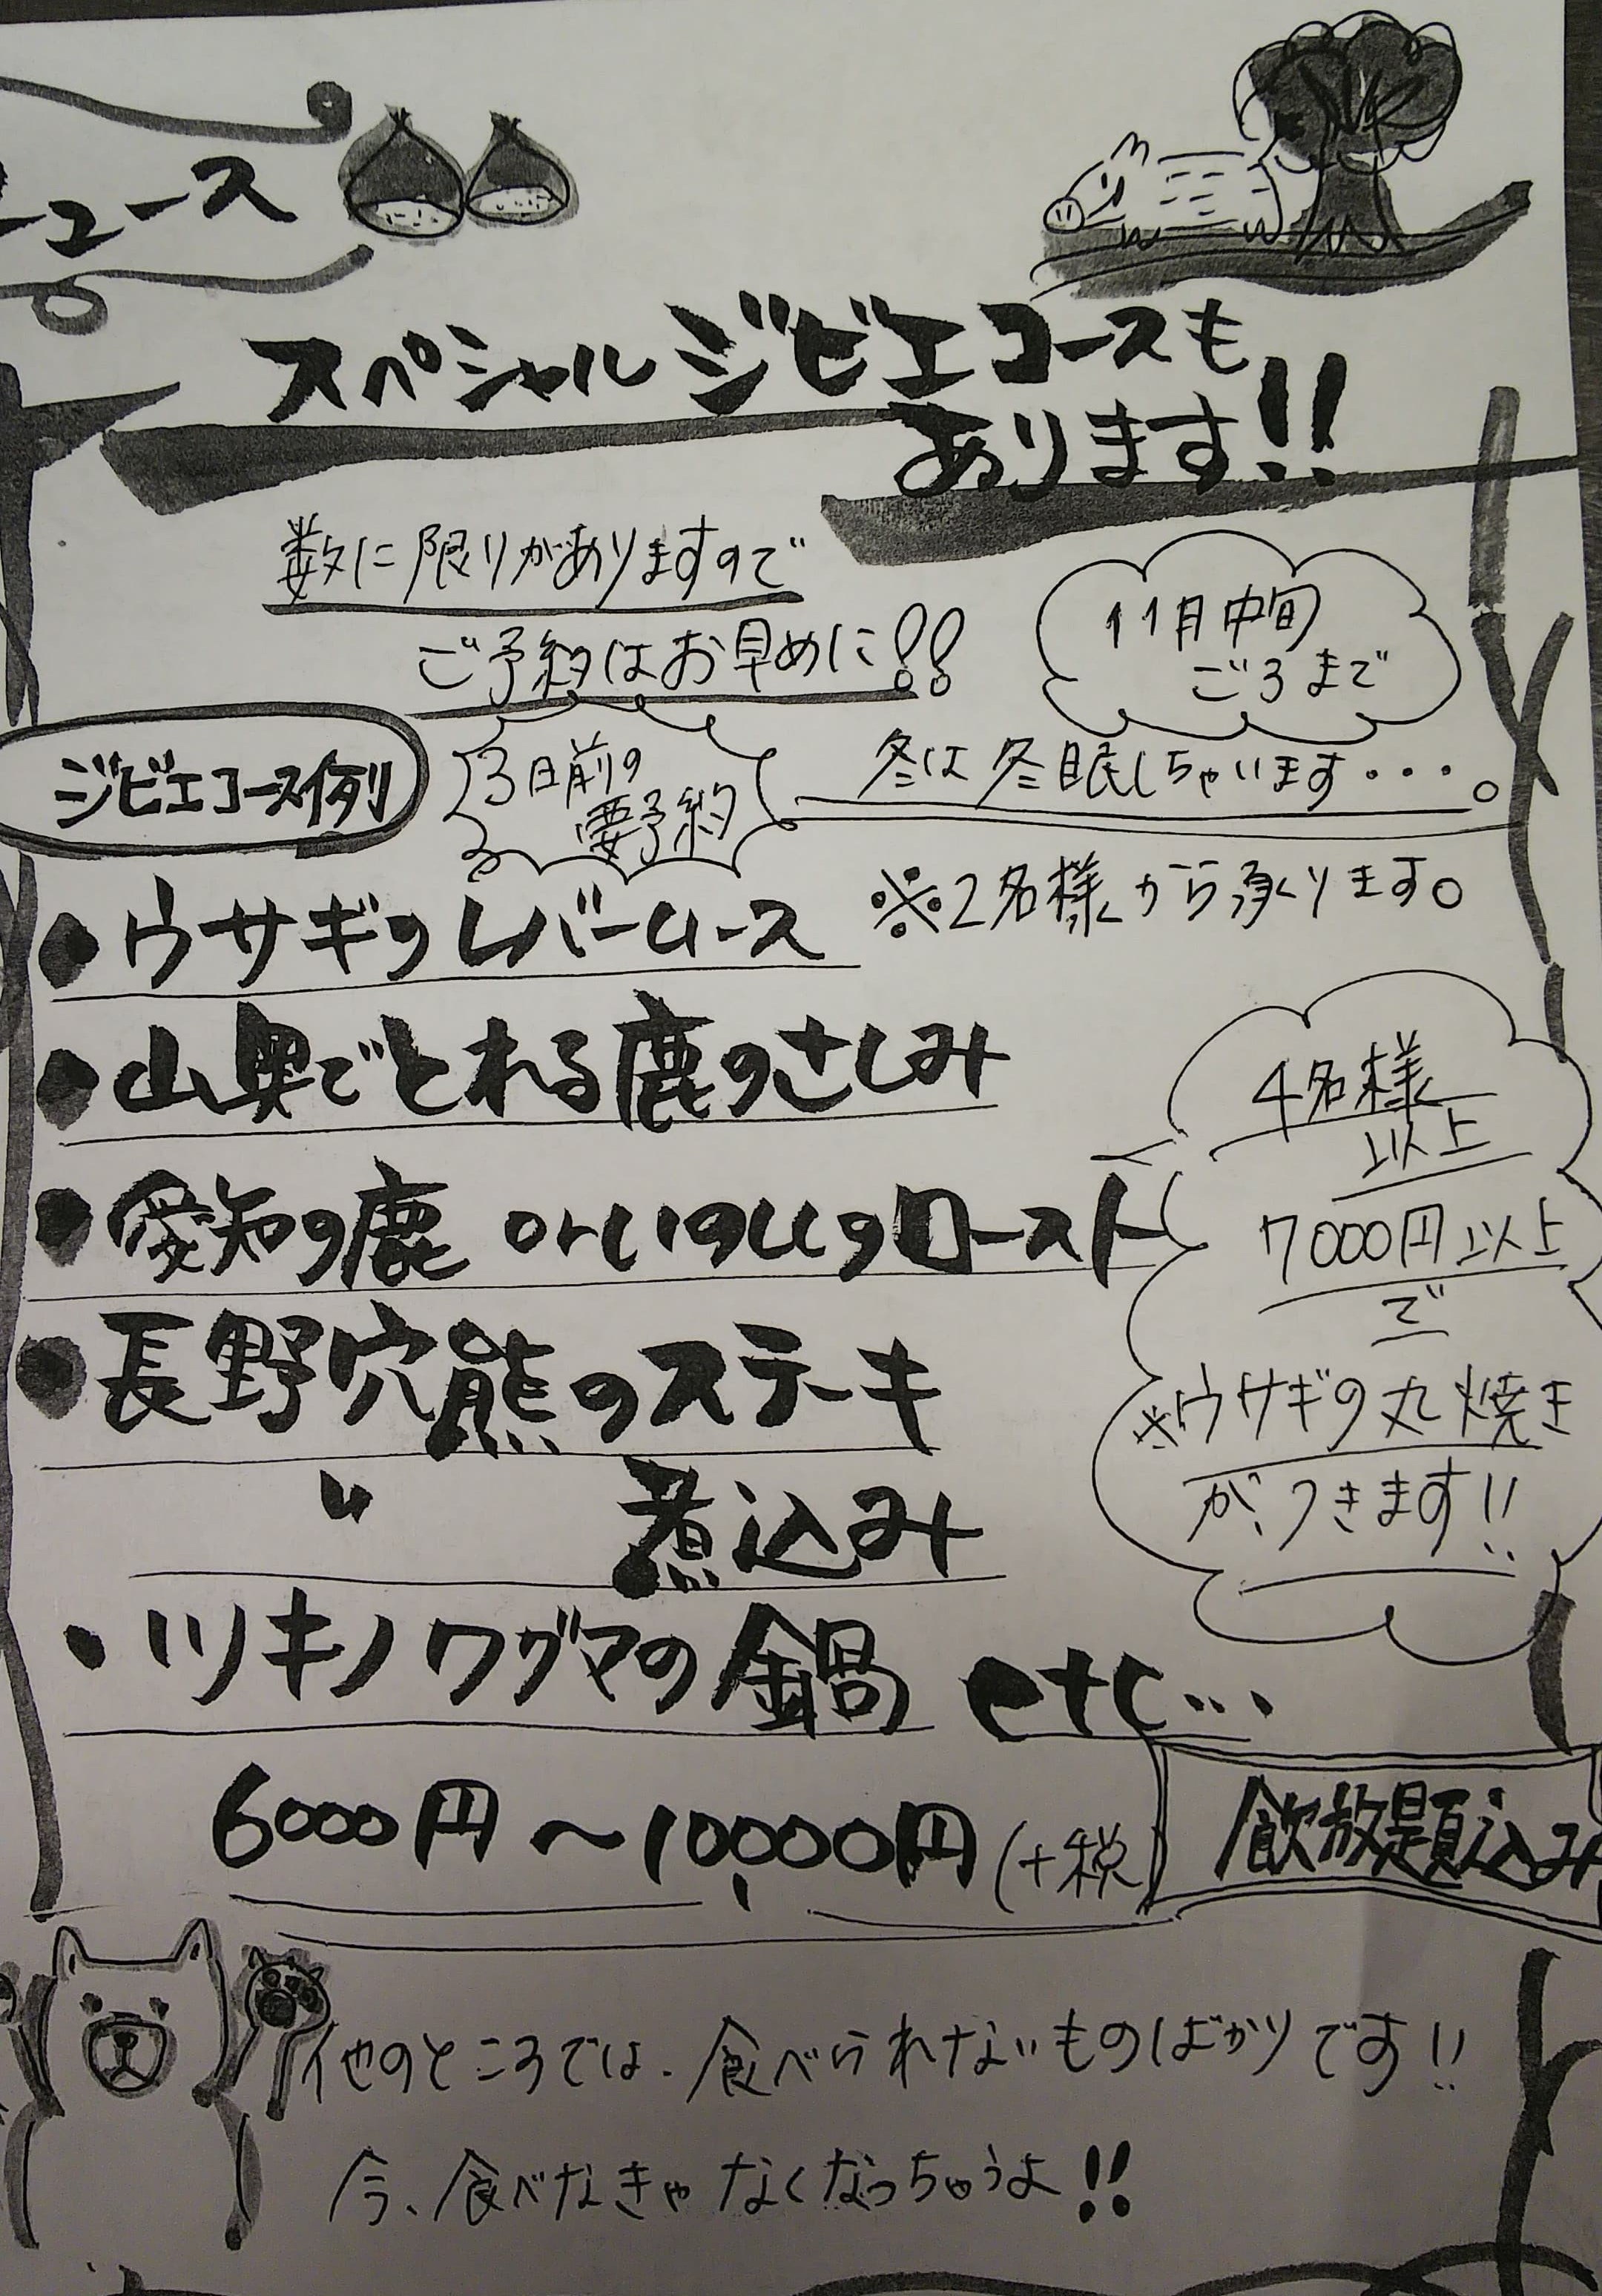 ニュース
スペシャルジビエコースも
あります!!
数に限りがありますので
ご予約はお早めに!!
11月中旬
ごろまで
ジビエコース例
3日前の
要予約
冬は冬眠しちゃいます・・・。
※2名様から承ります。
●ウサギのレバームース
●山奥でとれる鹿のさしみ
●愛知の鹿orいのししのロースト
●長野穴熊のステーキ
〃 煮込み
・ツキノワグマの鍋 etc...
4名様
以上
7000円以上
で
※ウサギの丸焼き
がつきます!!
6000円〜10,000円(+税)
飲放題込み
他のところでは、食べられないものばかりです!!
今、食べなきゃなくなっちゃうよ!!